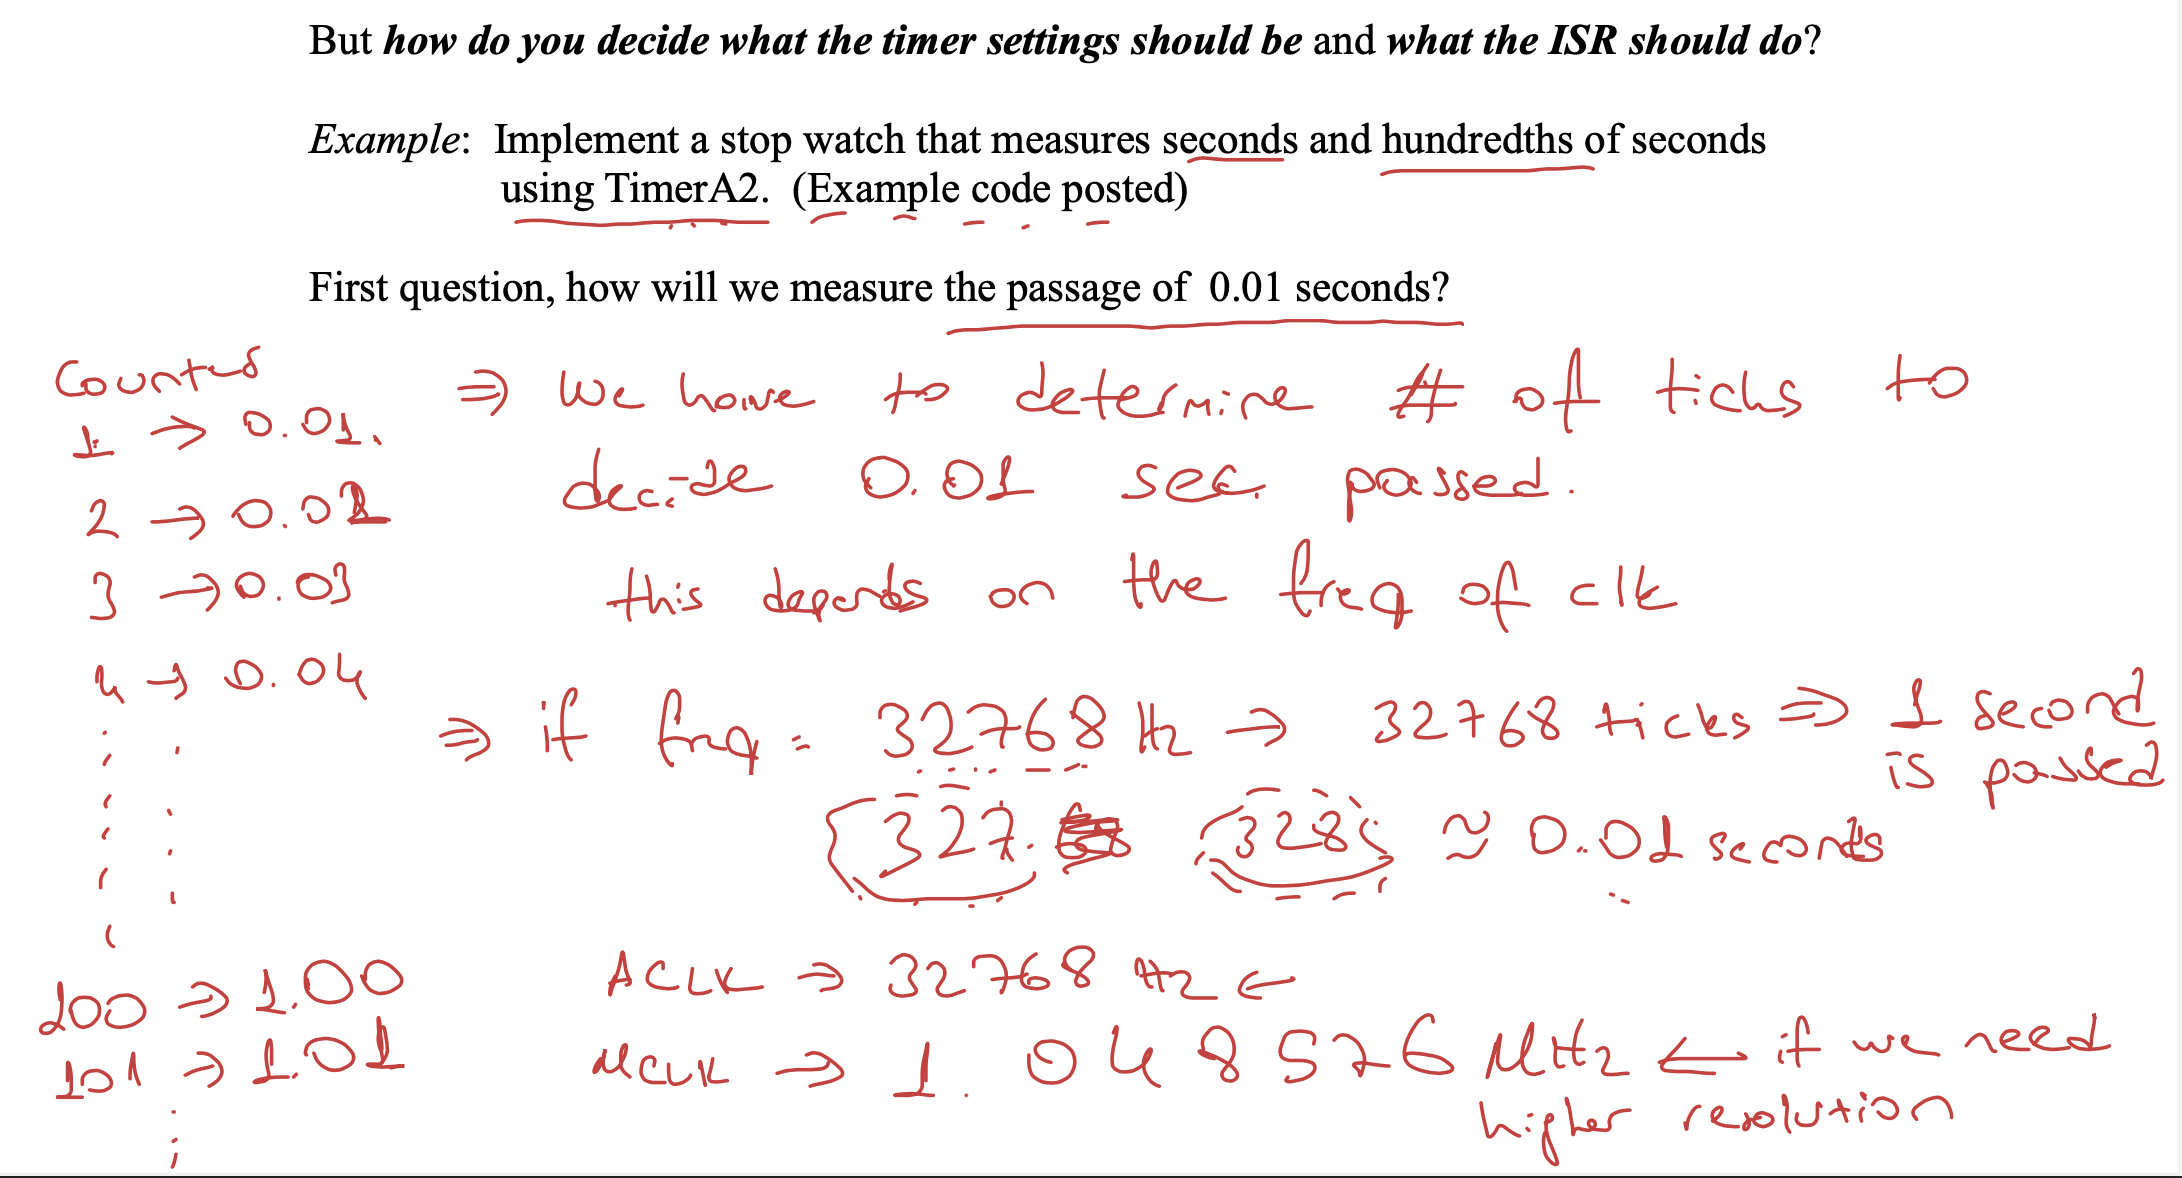 But how do you decide what the timer settings should be and what the ISR should do?
Example: Implement a stop watch that measures seconds and hundredths of seconds
using TimerA2. (Example code posted)
First question, how will we measure the passage of 0.01 seconds?
⇒ We have to determine # of ticks to
decide 0.01 sec. passed.
this depends on the freq of clk
⇒ if freq = 32768 Hz → 32768 ticks ⇒ 1 second
is passed
327. 328 ≈ 0.01 seconds
ACLK ⇒ 32768 Hz ←
MCLK → 1.048576 MHz ⇐ if we need
higher resolution
Counted
1 → 0.01
2 → 0.02
3 → 0.03
4 → 0.04
100 ⇒ 1.00
101 ⇒ 1.01